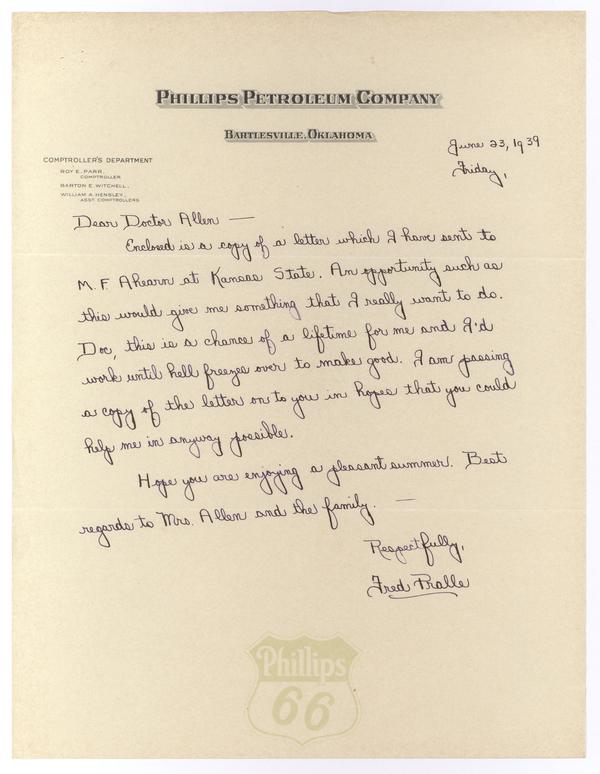 PHILLIPS PETROLEUM COMPANY
BARTLESVILLE, OKLAHOMA
June 23, 1939
Friday,
COMPTROLLER'S DEPARTMENT
ROY E. PARR,
COMPTROLLER
BARTON E. WITCHELL,
WILLIAM A. HENSLEY,
ASST. COMPTROLLERS
Dear Doctor Allen —
Enclosed is a copy of a letter which I have sent to
M. F. Ahearn at Kansas State. An opportunity such as
this would give me something that I really want to do.
Doc, this is a chance of a lifetime for me and I'd
work until hell freezes over to make good. I am passing
a copy of the letter on to you in hopes that you could
help me in anyway possible.
Hope you are enjoying a pleasant summer. Best
regards to Mrs. Allen and the family. —
Respectfully,
Fred Pralle
Phillips
66